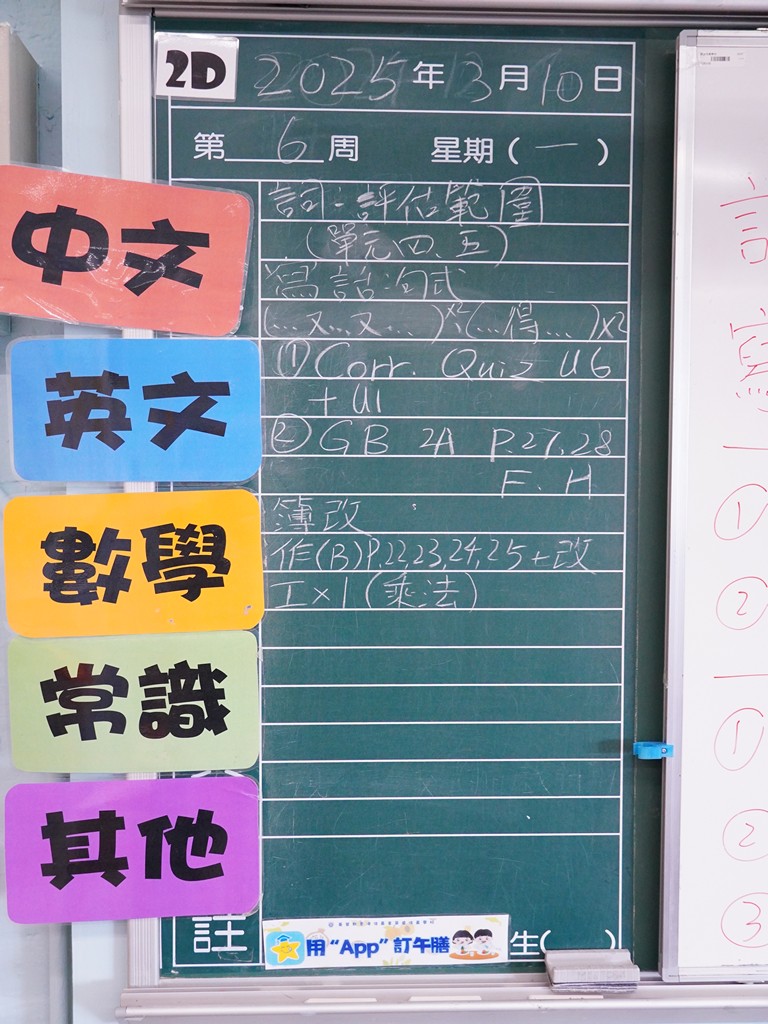 2D
2025年3月10日
第 6 周 星期(一)
中文
詞-評估範圍
(單元四、五)
寫話句式
(…又…又…)×2 (…得…)×2
英文
① Corr. Quiz U6
+ U1
② GB 2A P.27,28
F、H
數學
簿改
作(B)P.22,23,24,25+改
工×1(乘法)
常識
其他
註
用“App”訂午膳
生( )
①
②
①
②
③